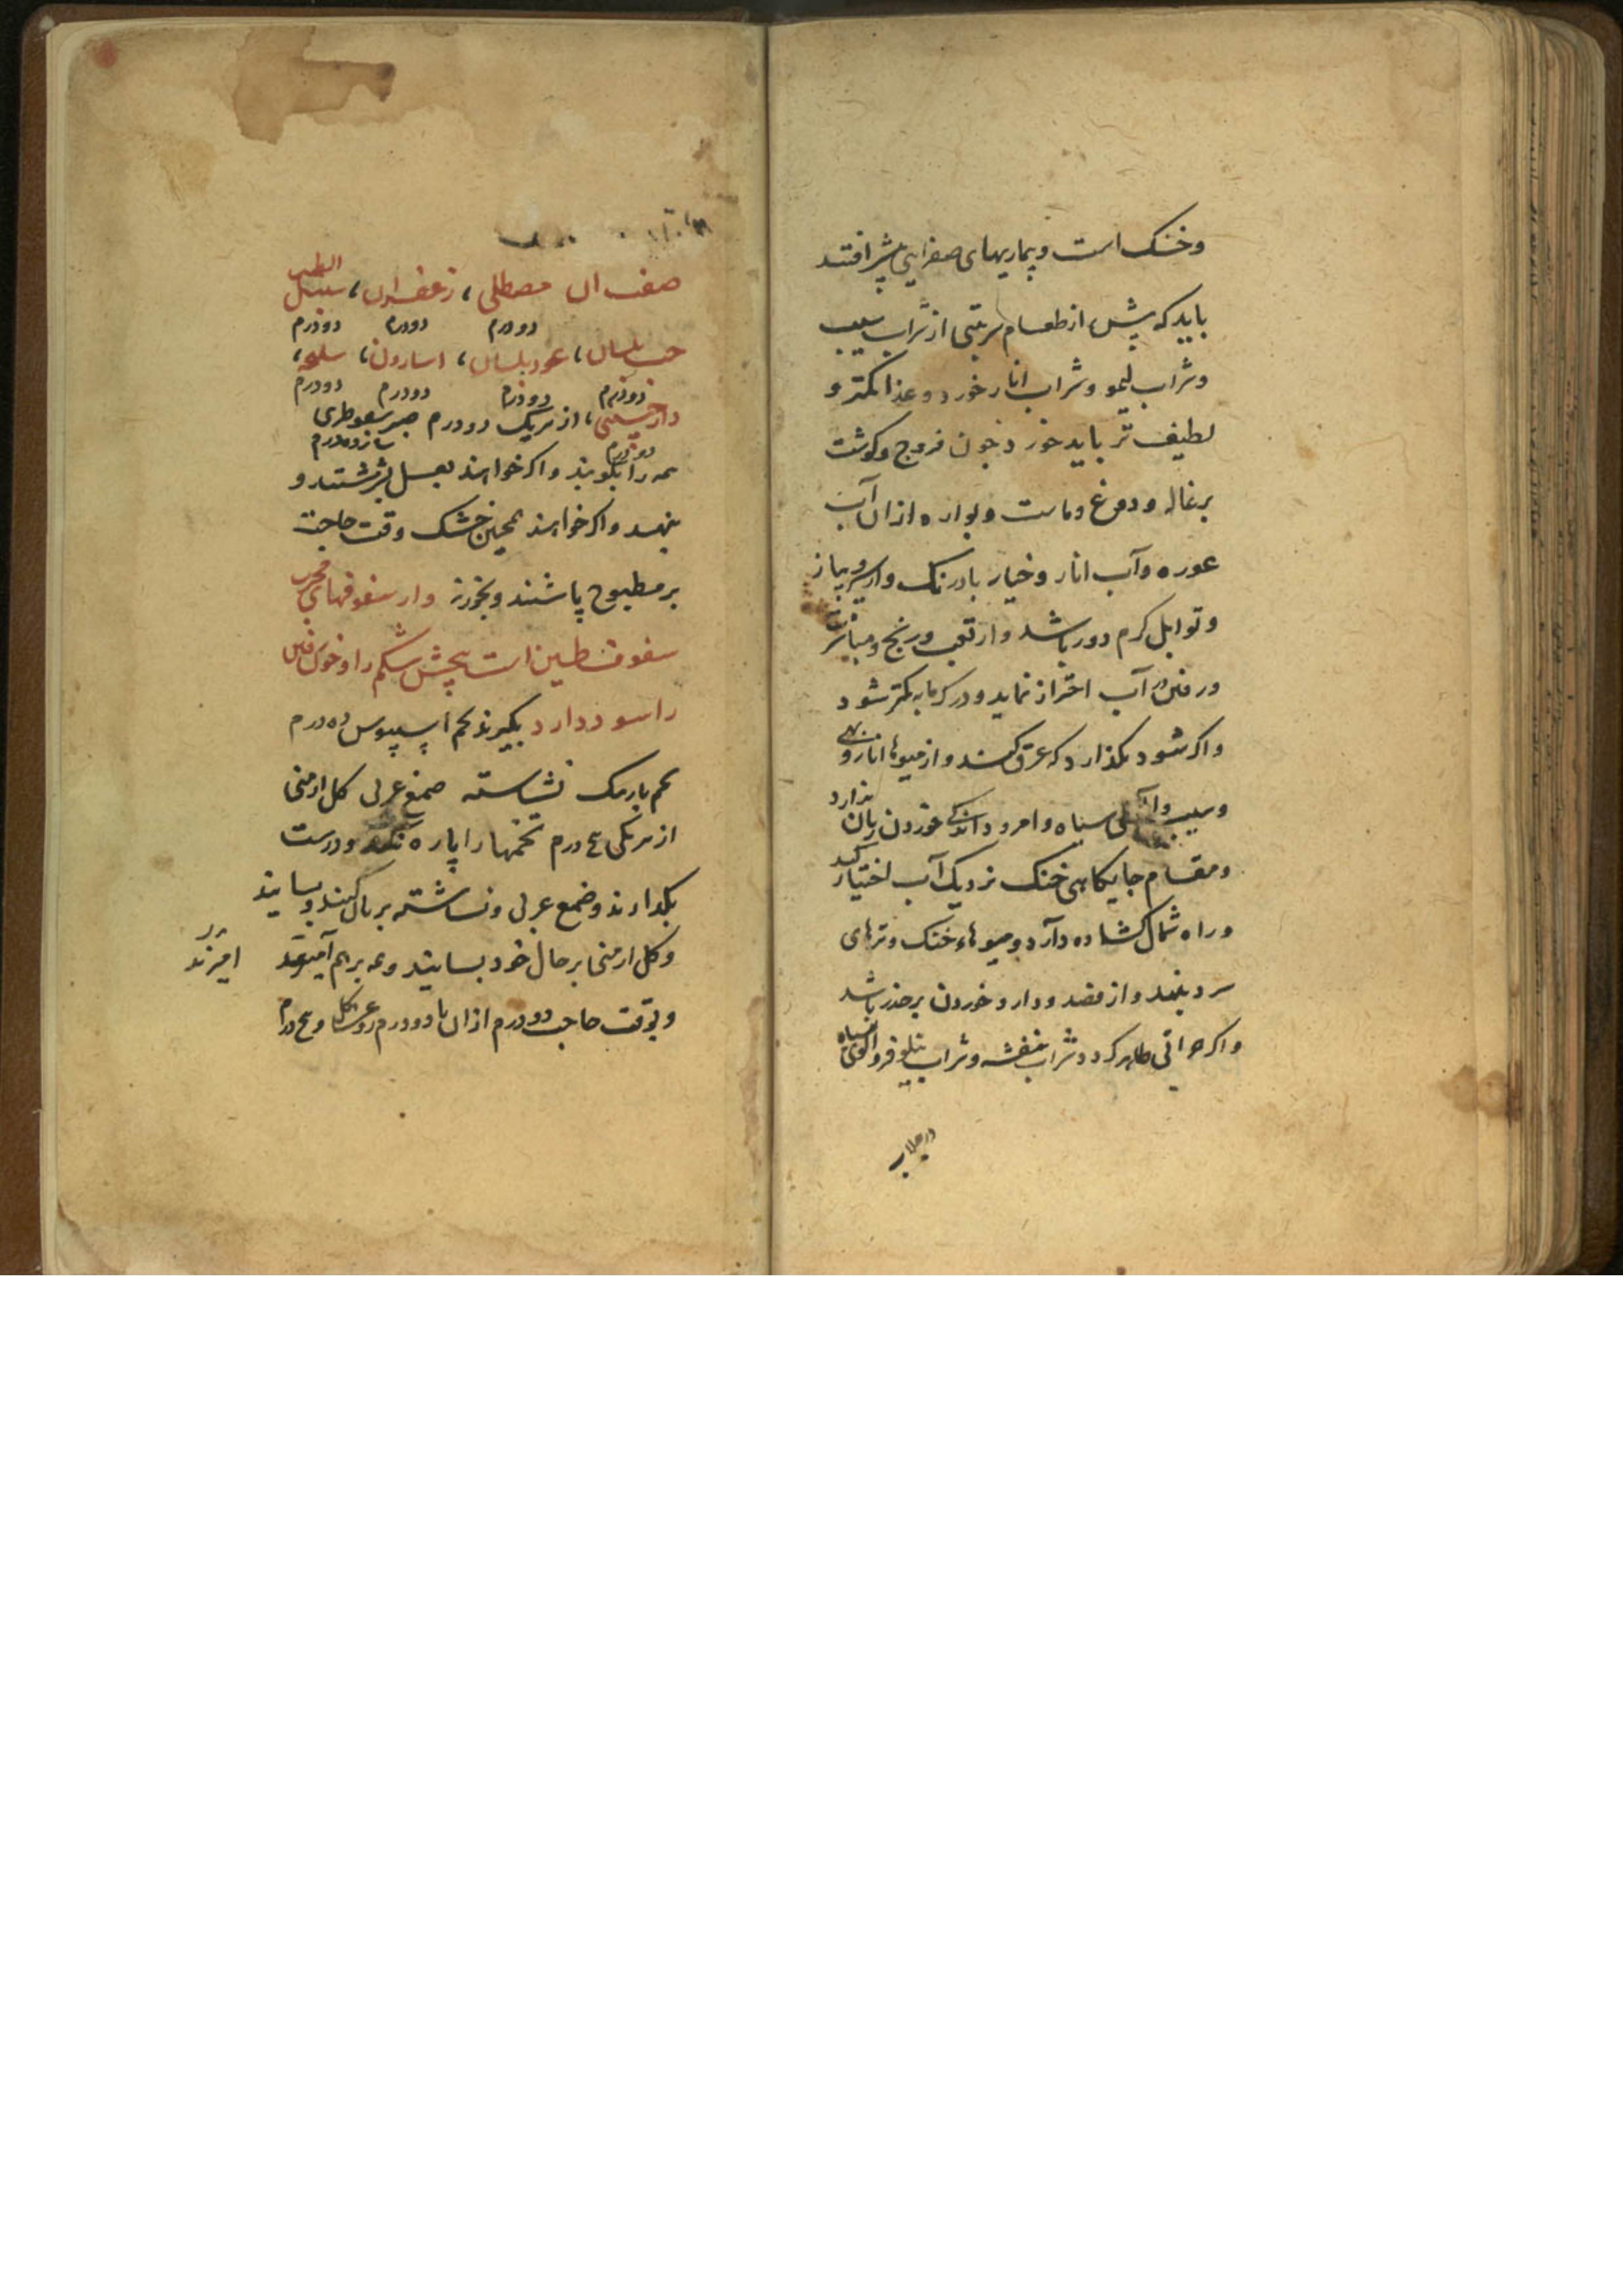 وخنک است و بیماریهای صفرایی بیشتر افتد
باید که پیش از طعام شربتی از شراب سیب
وشراب لیمو وشراب انار خورد و غذا کمتر و
لطیف تر باید خورد چون فروج وکوشت
بزغاله و دوغ وماست و ازان آب
غوره وآب انار وخیار بادرنک واز سیر وپیاز
وتوابل کرم دور باشد واز تعب ورنج و
ورفتن در آب احتراز نماید ودر کرمابه کمتر شود
واکر شود نکذارد که عرق کند واز میوها انار و
وسیب و سیاه وامرود اندکی خوردن زیان ندارد
ومقام جایکاهی خنک نزدیک آب اختیار کند
وراه شمال کشاده دارد ومیوهاء خنک وترهای
سرد بنهد واز فصد ودارو خوردن برحذر باشد
واکر حرارتی ظاهر کردد شراب بنفشه وشراب نیلوفر
در جلاب
صفت آن مصطکی، زعفران، سنبل الطیب
دودرم دودرم دودرم
حب بلسان، عود بلسان، اسارون، سلیخه،
دودرم دودرم دودرم دودرم
دارچینی، از هریک دودرم صبر سقوطری
دودرم
همه را بکوبند واکر خواهند بعسل بسرشند و
بنهند واکر خواهند همچنین خشک وقت حاجت
بر مطبوخ پاشند وبخورند واز سفوفهای مجرب
سفوف طین است پیچش شکم را وخون رفتن
را سود دارد بکیرند تخم اسپیوس ده درم
تخم بارتنک نشاسته صمغ عربی کل ارمنی
از هر یکی درم تخمها را پاره نکنند ودرست
بکدارند وصمغ عربی ونشاسته بریان کنند وبسایند
وکل ارمنی بر حال خود بسایند وهمه بر هم آمیزند
امیزند
وبوقت حاجت دودرم ازان با دودرم روغن کل